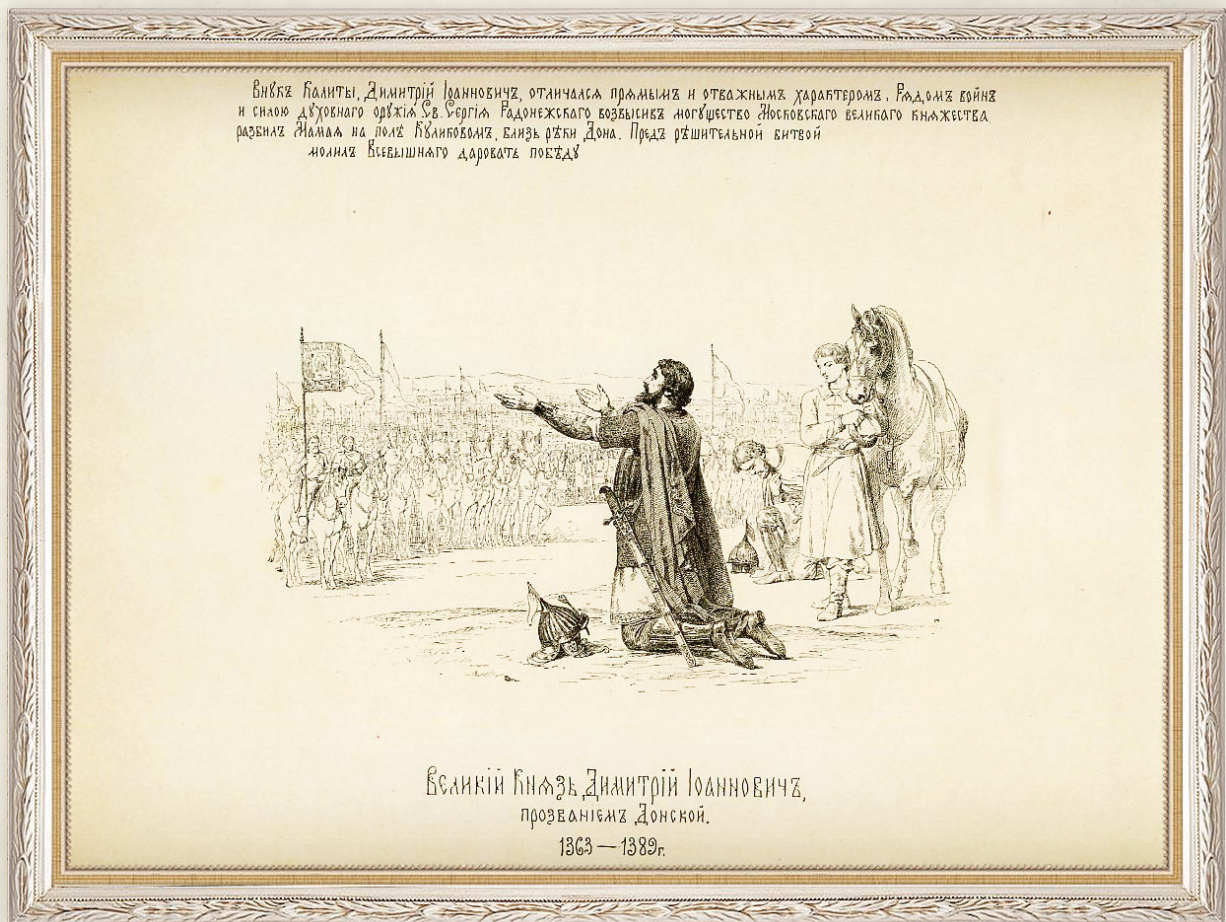 Внукъ Калиты, Димитрій Іоанновичъ, отличался прямымъ и отважнымъ характеромъ. Рядомъ войнъ
и силою духовнаго оружія Св. Сергія Радонежскаго возвысивъ могущество Московскаго великаго княжества
разбилъ Мамая на полѣ Куликовомъ, близь рѣки Дона. Предъ рѣшительной битвой
молилъ Всевышняго даровать побѣду
Великій Князь Димитрій Іоанновичъ,
прозваніемъ Донской.
1363—1389г.